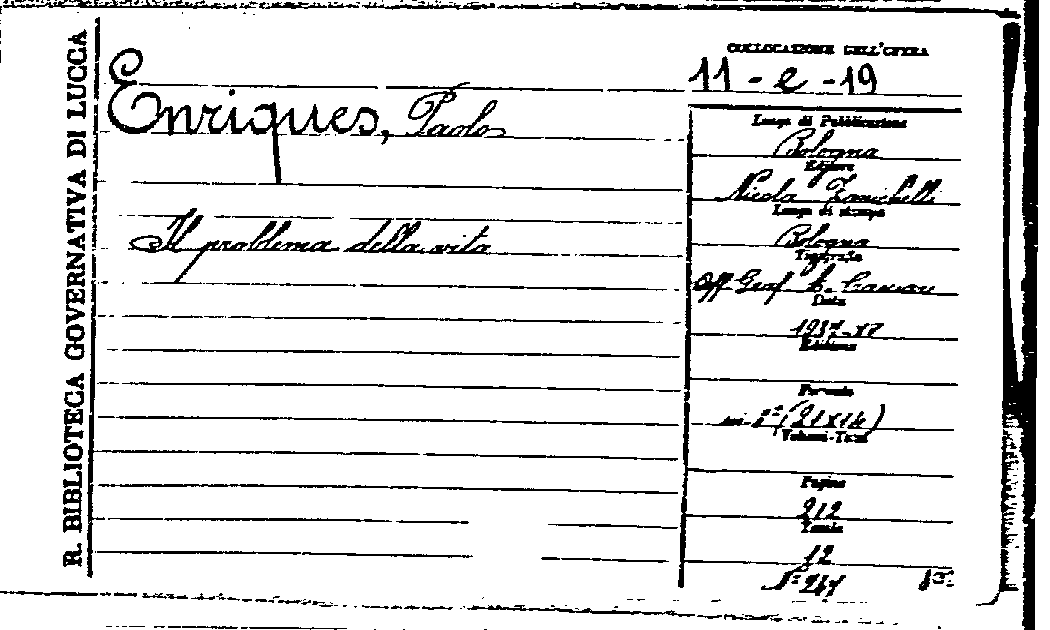 R. BIBLIOTECA GOVERNATIVA DI LUCCA
COLLOCAZIONE DELL'OPERA
11 - e - 19
Enriques, Paolo
Il problema della vita
Luogo di Pubblicazione
Bologna
Editore
Nicola Zanichelli
Luogo di stampa
Bologna
Tipografia
Off Graf
Data
1937-XV
Edizione
Formato
in 8° (21x14)
Volumi-Tomi
Pagine
212
Tavole
12
N° 247